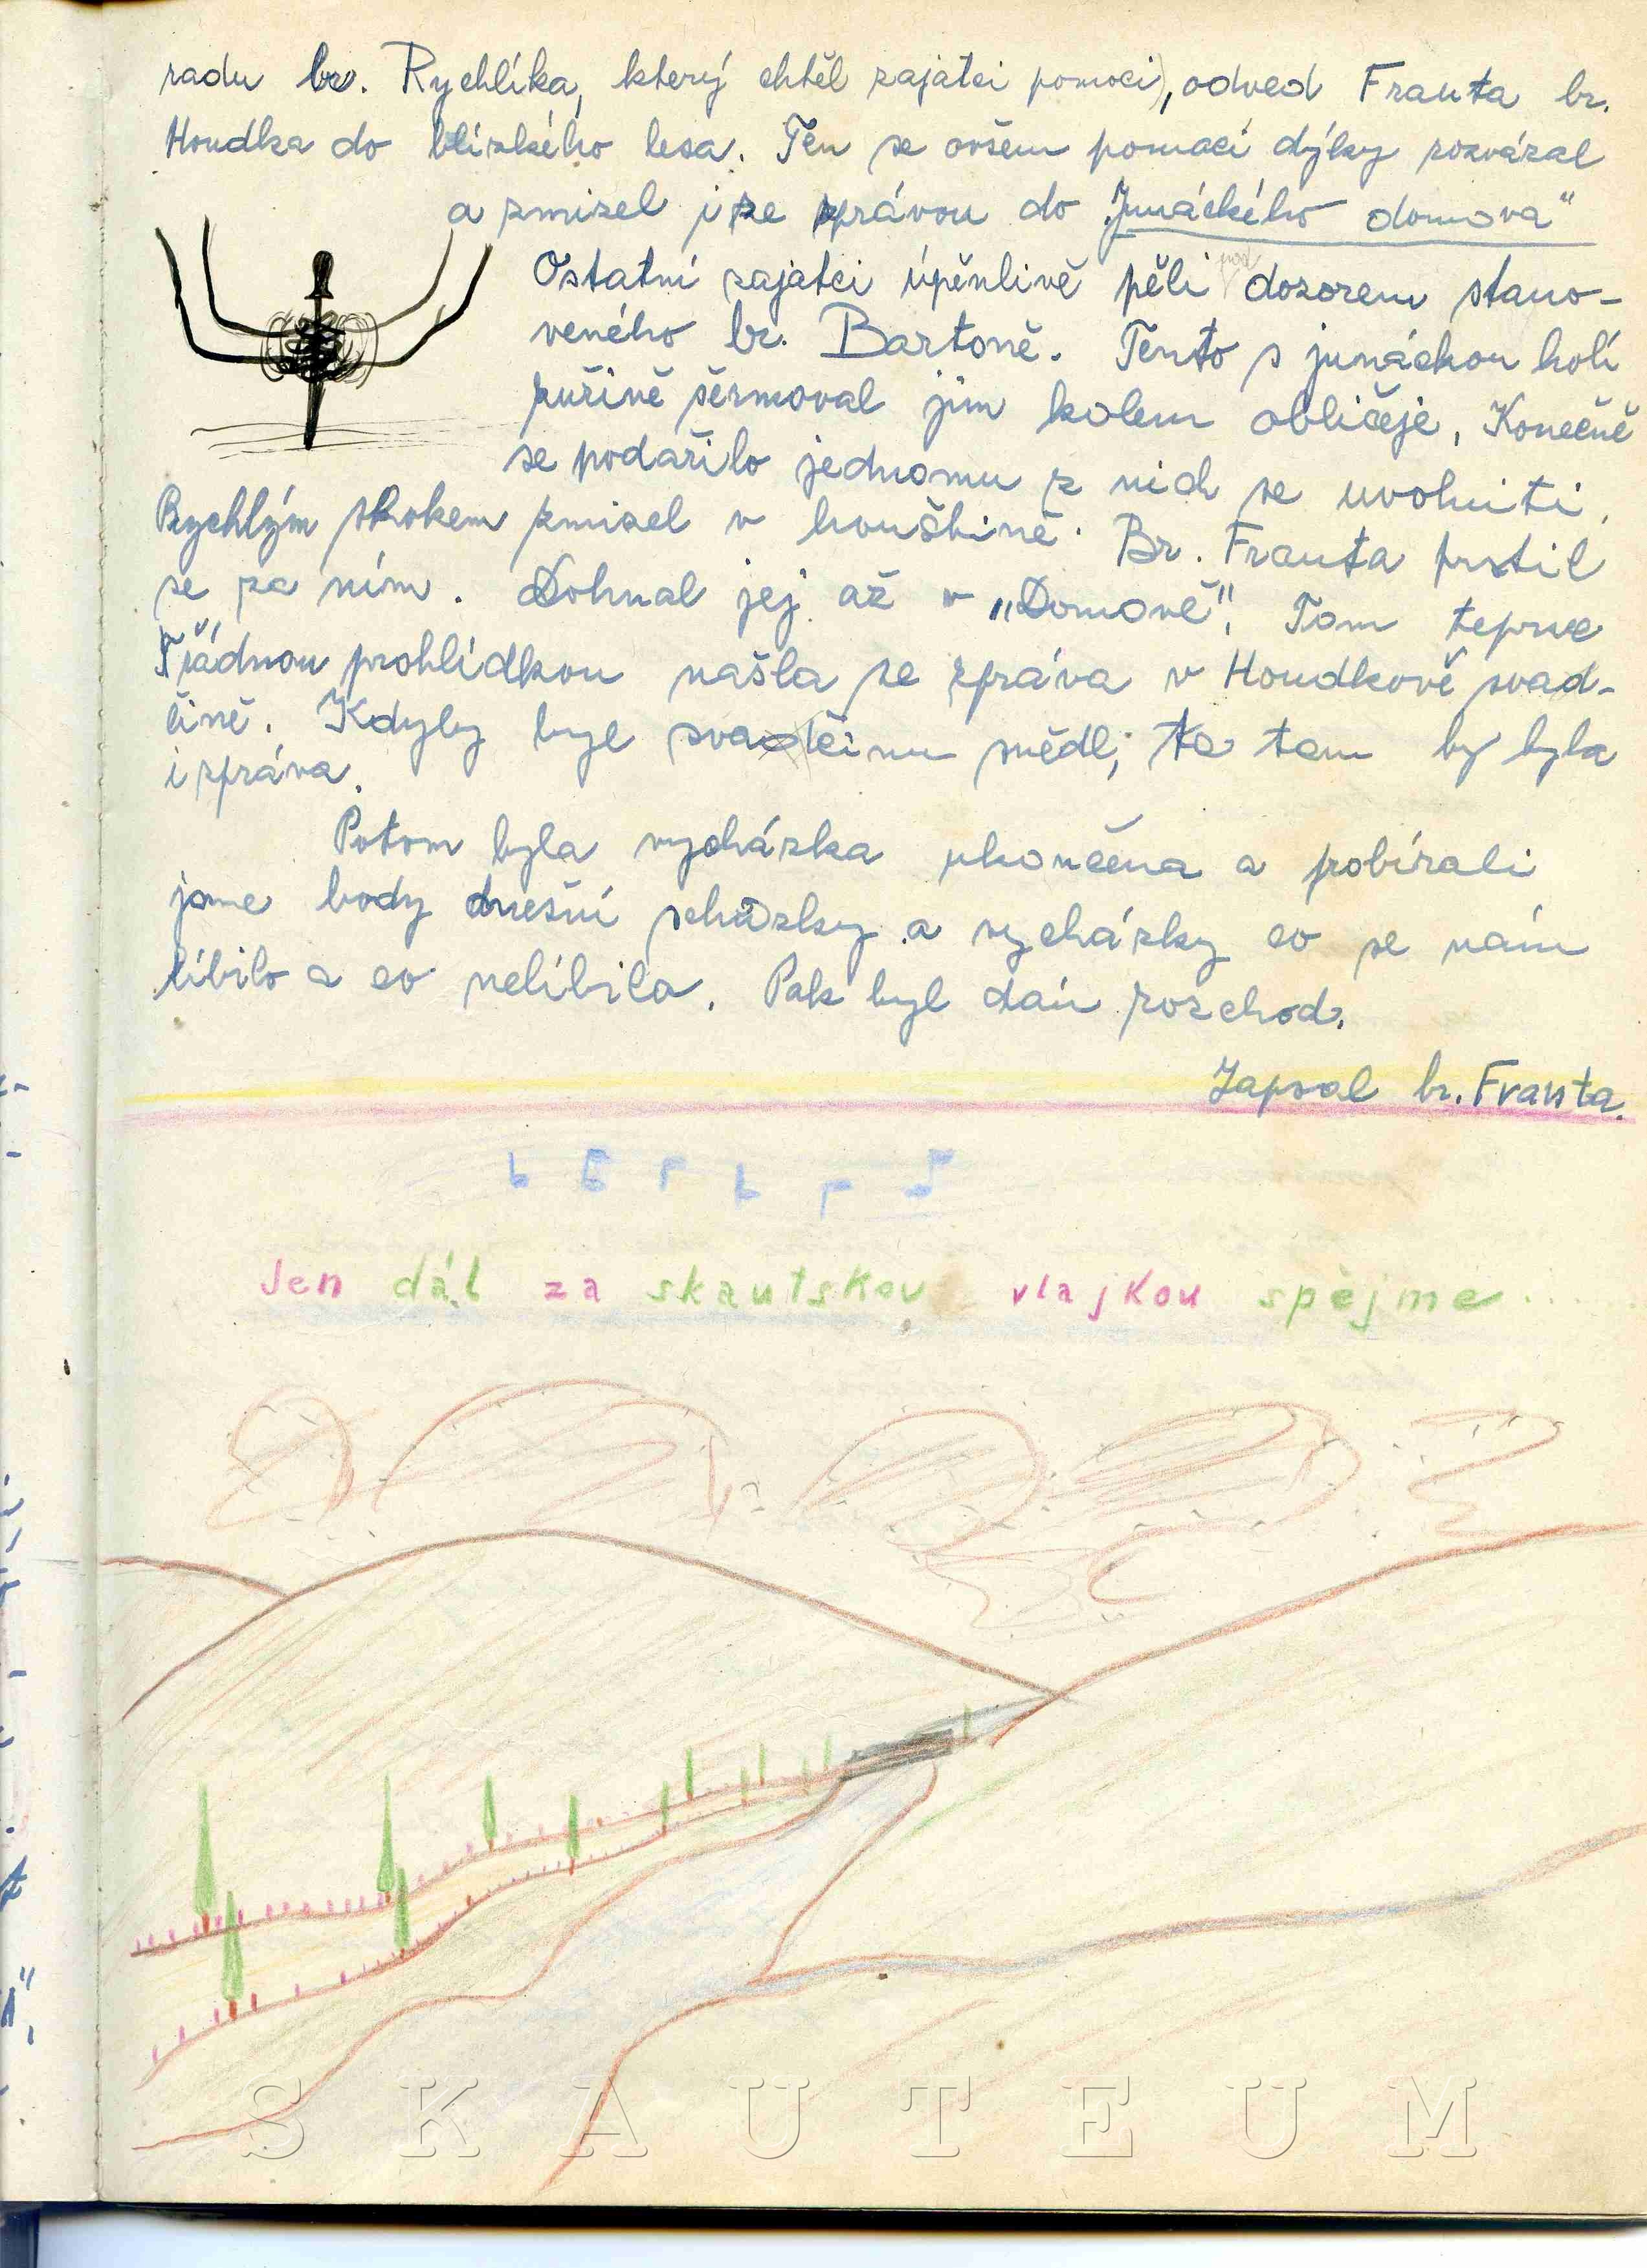 radu br. Rychlíka, který chtěl zajatci pomoci), odved Franta br.
Houdka do blízkého lesa. Ten se ovšem pomocí dýky rozvázal
a zmizel i se zprávou do „Junáckého domova“
Ostatní zajatci úpěnlivě pěli pod dozorem stano-
veného br. Bartoně. Tento s junáckou holí
zuřivě šermoval jim kolem obličeje. Konečně
se podařilo jednomu z nich se uvolniti.
Rychlým skokem zmizel v houštině. Br. Franta pustil
se za ním. Dohnal jej až v „Domově“. Tam teprve
řádnou prohlídkou našla se zpráva v Houdkově svad-
čině. Kdyby byl svačinu snědl, ta tam by byla
i zpráva.
Potom byla vycházka ukončena a probírali
jsme body dnešní schůzky a vycházky co se nám
líbilo a co nelíbilo. Pak byl dán rozchod.
Zapsal br. Franta.
Jen dál za skautskou vlajkou spějme.....
SKAUTEUM